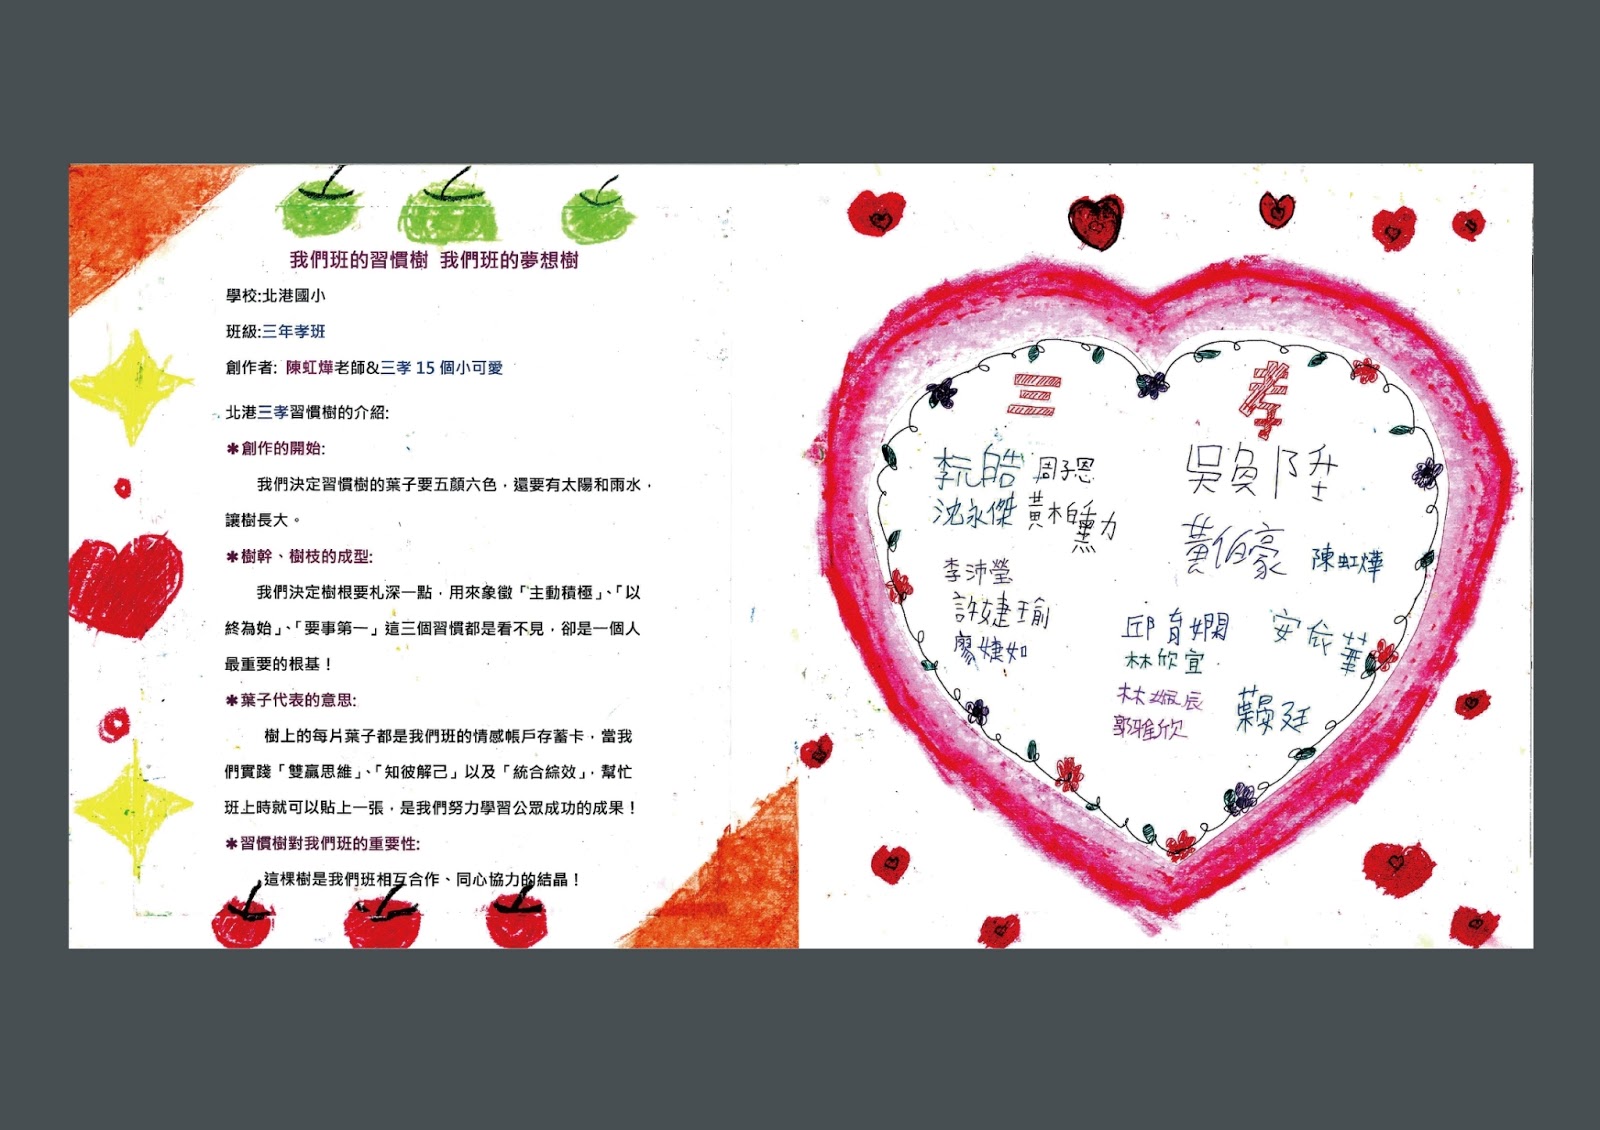 我們班的習慣樹 我們班的夢想樹
學校:北港國小
班級:三年孝班
創作者: 陳虹燁老師&三孝 15 個小可愛
北港三孝習慣樹的介紹:
＊創作的開始:
我們決定習慣樹的葉子要五顏六色，還要有太陽和雨水，
讓樹長大。
＊樹幹、樹枝的成型:
我們決定樹根要札深一點，用來象徵「主動積極」、「以
終為始」、「要事第一」這三個習慣都是看不見，卻是一個人
最重要的根基！
＊葉子代表的意思:
樹上的每片葉子都是我們班的情感帳戶存蓄卡，當我
們實踐「雙贏思維」、「知彼解己」以及「統合綜效」，幫忙
班上時就可以貼上一張，是我們努力學習公眾成功的成果！
＊習慣樹對我們班的重要性:
這棵樹是我們班相互合作、同心協力的結晶！
三 孝
李沅皓 周子恩
沈永傑 黃柏勳
李沛瑩
許婕瑜
廖婕如
吳奐陞
黃佰豪 陳虹燁
邱育嫻 安依華
林欣宜
林娫辰
郭雅欣